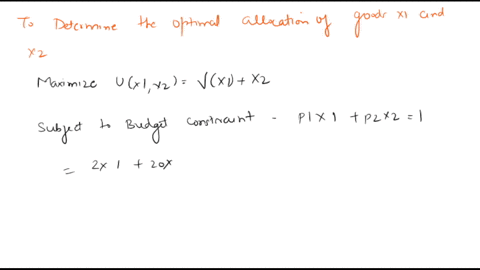 To Determine the optimal allocation of goods x1 and
x2
Maximize U(x1, x2) = √(x1) + x2
Subject to Budget constraint - P1x1 + P2x2 = 1
= 2x1 + 20x